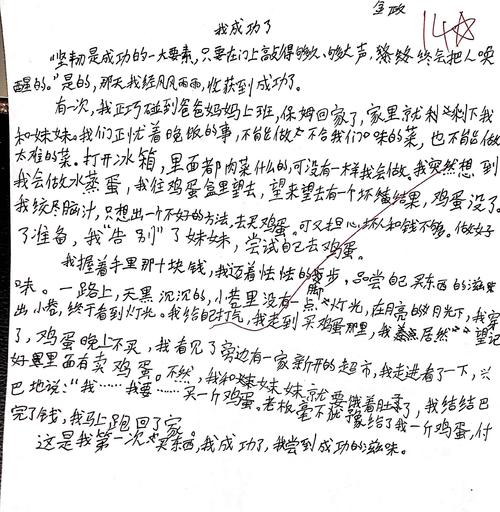 金政
14☆
我成功了
“坚韧是成功的一大要素,只要在门上敲得够久、够大声,终会把人唤
醒的。”是的,那天我经风风雨雨,收获到成功了。
有一次,我正巧碰到爸爸妈妈上班,保姆回家了,家里就剩下我
和妹妹。我们正忙着晚饭的事,不能做不合我们口味的菜,也不能做
太难的菜。打开冰箱,里面都肉菜什么的,可没有一样我会做。我突然想到
我会做水蒸蛋,我往鸡蛋盒里望去,望来望去有一个坏结果,鸡蛋没了。
我绞尽脑汁,只想出一个不好的方法,去买鸡蛋。可又担心坏人和钱不够。做好
了准备,我“告别”了妹妹,尝试自己去买鸡蛋。
我握着手里那十块钱,我迈着怯怯的脚步,品尝自己买东西的滋
味。一路上,天黑沉沉的,小巷里没有一点灯光,在月亮的月光下,我
出小巷,终于看到灯光。我给自己打气,我走到买鸡蛋那里,我居然望记
了,鸡蛋晚上不买,我看见了旁边有一家新开的超市,我走进看了一下,兴
好里面有卖鸡蛋。不然,我和妹妹就要饿着肚子了,我结结巴
巴地说:“我……我要……买一个鸡蛋。老板毫不犹豫给了我一斤鸡蛋,付
完了钱,我马上跑回了家。
这是我第一次买东西,我成功了,我尝到成功的滋味。